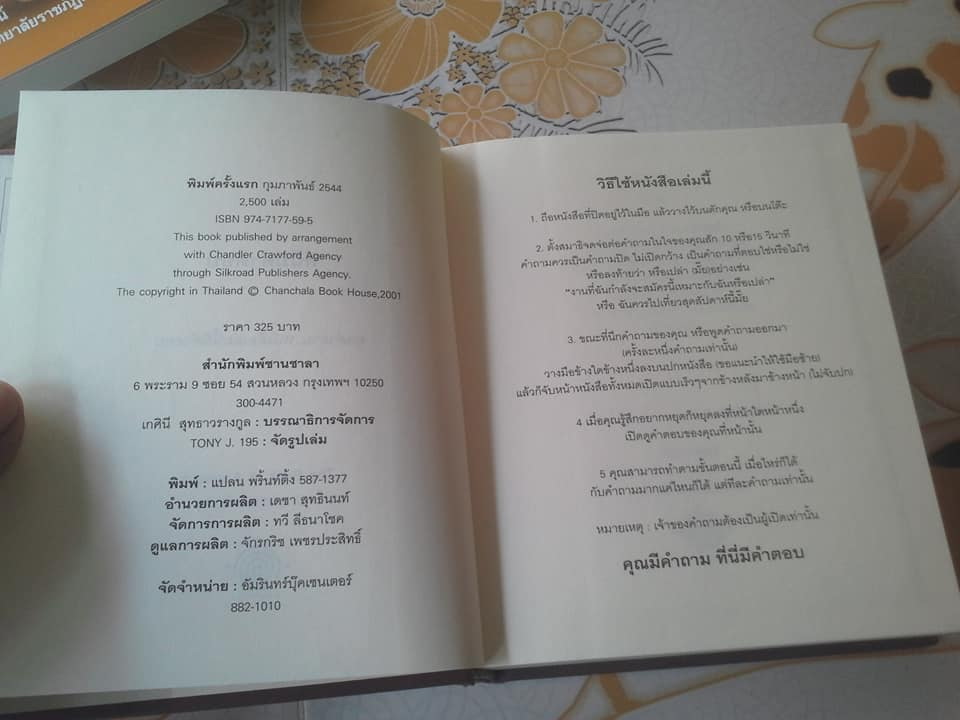 นี้
ทยาลัยราชภัฏ
พิมพ์ครั้งแรก กุมภาพันธ์ 2544
2,500 เล่ม
ISBN 974-7177-59-5
This book published by arrangement
with Chandler Crawford Agency
through Silkroad Publishers Agency.
The copyright in Thailand © Chanchala Book House,2001
ราคา 325 บาท
สำนักพิมพ์ชานชาลา
6 พระราม 9 ซอย 54 สวนหลวง กรุงเทพฯ 10250
300-4471
เกศินี สุทธาวรางกูล : บรรณาธิการจัดการ
TONY J. 195 : จัดรูปเล่ม
พิมพ์ : แปลน พริ้นท์ติ้ง 587-1377
อำนวยการผลิต : เดชา สุทธินนท์
จัดการการผลิต : ทวี ลีธนาโชค
ดูแลการผลิต : จักรกริช เพชรประสิทธิ์
จัดจำหน่าย : อัมรินทร์บุ๊คเซนเตอร์
882-1010
วิธีใช้หนังสือเล่มนี้
1. ถือหนังสือที่ปิดอยู่ไว้ในมือ แล้ววางไว้บนตักคุณ หรือบนโต๊ะ
2. ตั้งสมาธิจดจ่อต่อคำถามในใจของคุณสัก 10 หรือ15 วินาที
คำถามควรเป็นคำถามปิด ไม่เปิดกว้าง เป็นคำถามที่ตอบใช่หรือไม่ใช่
หรือลงท้ายว่า หรือเปล่า (มั๊ย)อย่างเช่น
"งานที่ฉันกำลังจะสมัครนี้เหมาะกับฉันหรือเปล่า"
หรือ ฉันควรไปเที่ยวสุดสัปดาห์นี้มั๊ย
3. ขณะที่นึกคำถามของคุณ หรือพูดคำถามออกมา
(ครั้งละหนึ่งคำถามเท่านั้น)
วางมือข้างใดข้างหนึ่งลงบนปกหนังสือ (ขอแนะนำให้ใช้มือซ้าย)
แล้วก็จับหน้าหนังสือทั้งหมดเปิดแบบเร็วๆจากข้างหลังมาข้างหน้า (ไม่จับปก)
4 เมื่อคุณรู้สึกอยากหยุดก็หยุดลงที่หน้าใดหน้าหนึ่ง
เปิดดูคำตอบของคุณที่หน้านั้น
5 คุณสามารถทำตามขั้นตอนนี้ เมื่อไหร่ก็ได้
กับคำถามมากแค่ไหนก็ได้ แต่ทีละคำถามเท่านั้น
หมายเหตุ : เจ้าของคำถามต้องเป็นผู้เปิดเท่านั้น
คุณมีคำถาม ที่นี่มีคำตอบ